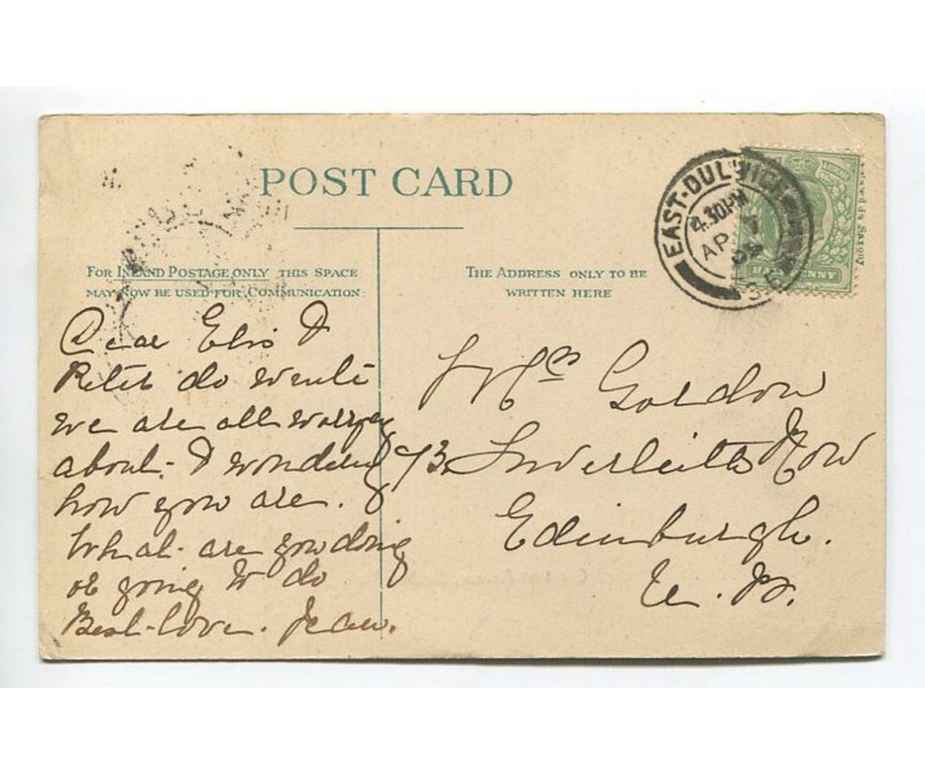 POST CARD
FOR INLAND POSTAGE ONLY THIS SPACE
MAY NOW BE USED FOR COMMUNICATION.
THE ADDRESS ONLY TO BE
WRITTEN HERE
EAST-DULWICH
4.30PM
AP
S.E.
HALFPENNY
Dear Elsis &
Peter do write
we are all
about. I wonder
how you are.
What are you doing
or going to do
Best love. Jean.
Mrs Gordon
73 Inverleith Row
Edinburgh.
N.B.